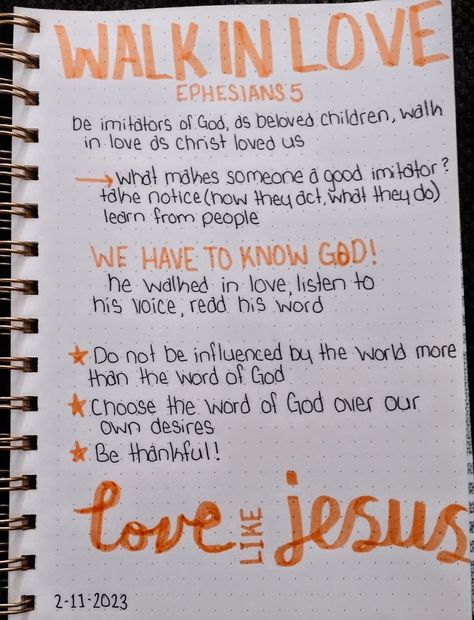 WALK IN LOVE
EPHESIANS 5
be imitators of God, as beloved children, walk
in love as christ loved us
→ what makes someone a good imitator?
take notice (how they act, what they do)
learn from people
WE HAVE TO KNOW GOD!
he walked in love, listen to
his voice, read his word
★ Do not be influenced by the world more
than the word of God
★ Choose the word of God over our
own desires
★ Be thankful!
love LIKE jesus
2-11-2023